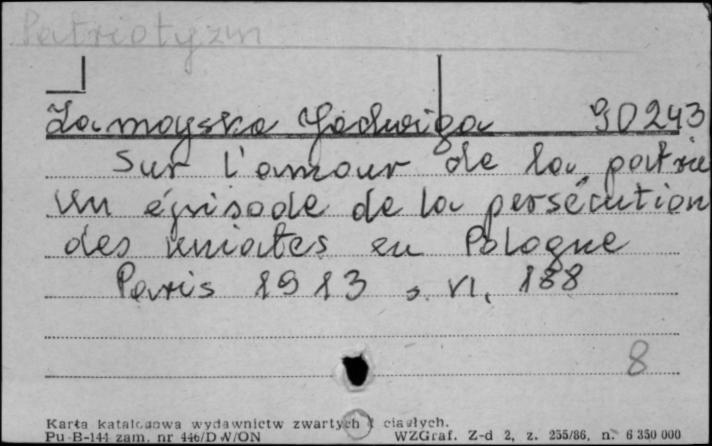 Patriotyzm
Zamoyska Jadwiga 90243
Sur l'amour de la patrie
un épisode de la persécution
des uniates en Pologne
Paris 1913 s. VI, 188
8
Karta katalogowa wydawnictw zwartych i ciągłych.
Pu-B-144 zam. nr 446/DW/ON WZGraf. Z-d 2, z. 255/86, n. 6 350 000